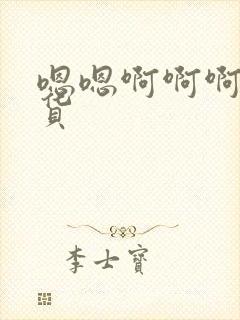 嗯嗯啊啊啊
花
贝
李士宝